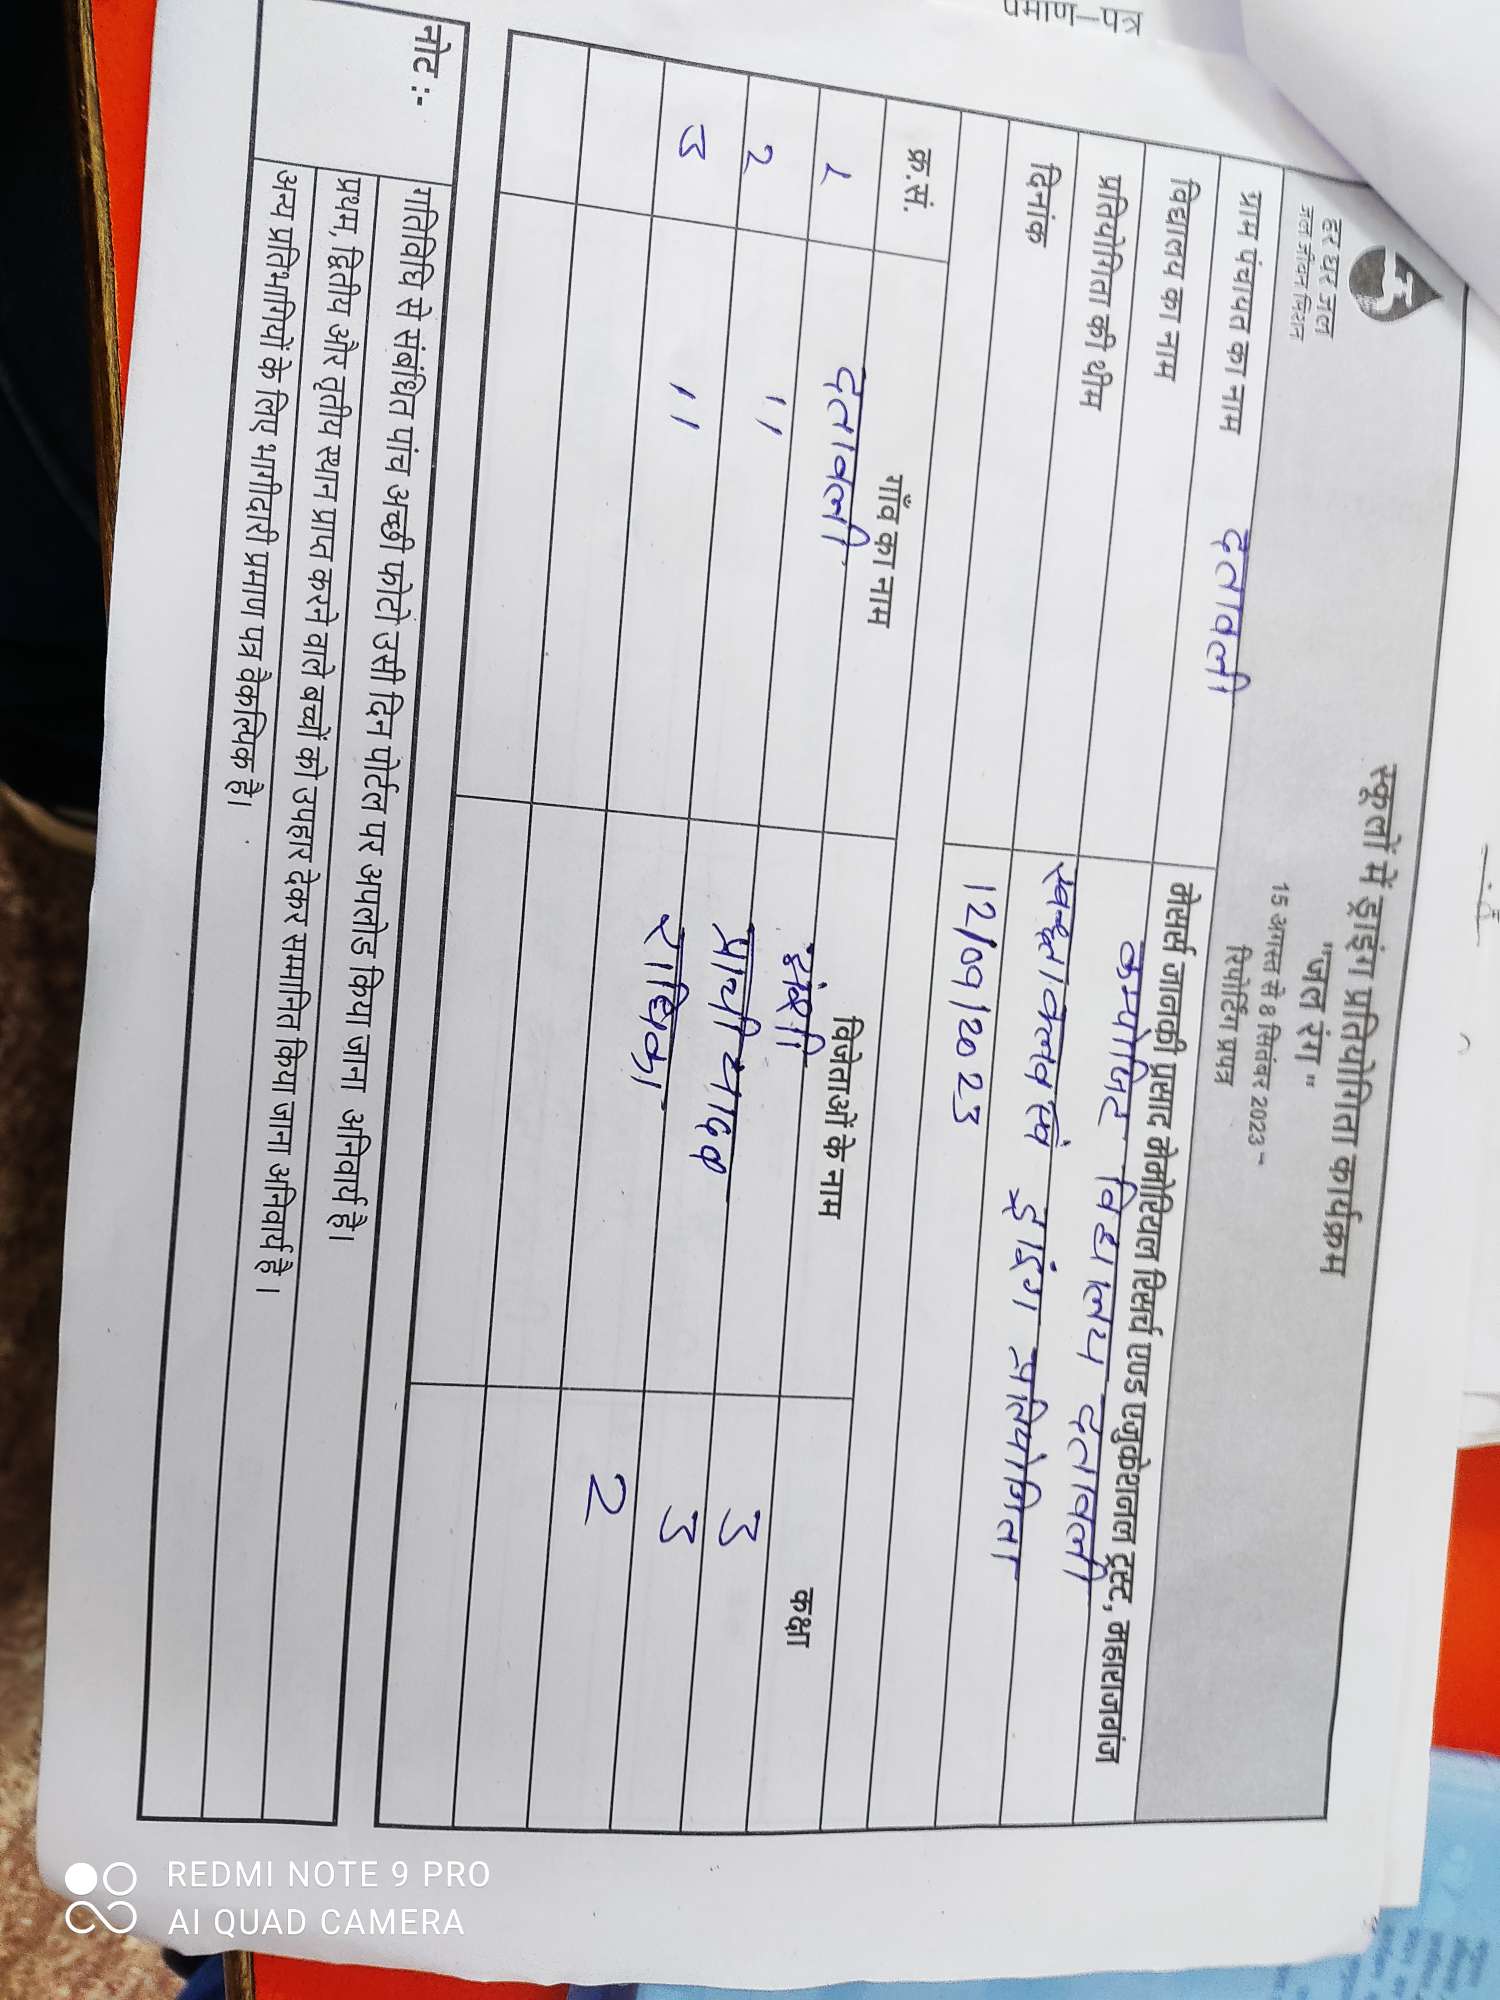 प्रमाण–पत्र
हर घर जल
जल जीवन मिशन
स्कूलों में ड्राइंग प्रतियोगिता कार्यक्रम
"जल रंग"
15 अगस्त से 8 सितंबर 2023 –
रिपोर्टिंग प्रपत्र
ग्राम पंचायत का नाम दतावली
मेसर्स जानकी प्रसाद मेमोरियल रिसर्च एण्ड एजुकेशनल ट्रस्ट, महाराजगंज
विद्यालय का नाम कम्पोजिट विद्यालय दतावली
प्रतियोगिता की थीम स्वच्छता ड्राइंग प्रतियोगिता
दिनांक 12/09/2023
क्र.सं. गाँव का नाम विजेताओं के नाम कक्षा
1 दतावली 3
2 11 प्राची यादव 3
3 11 राधिका 2
नोट :- गतिविधि से संबंधित पांच अच्छी फोटो उसी दिन पोर्टल पर अपलोड किया जाना अनिवार्य है।
प्रथम, द्वितीय और तृतीय स्थान प्राप्त करने वाले बच्चों को उपहार देकर सम्मानित किया जाना अनिवार्य है ।
अन्य प्रतिभागियों के लिए भागीदारी प्रमाण पत्र वैकल्पिक है।
REDMI NOTE 9 PRO
AI QUAD CAMERA